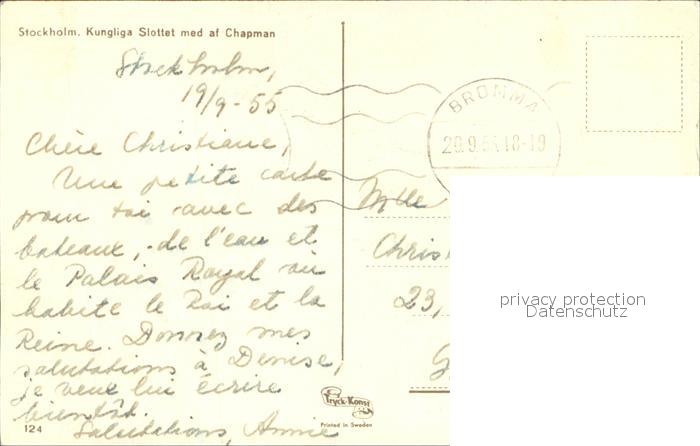 Stockholm. Kungliga Slottet med af Chapman
Stockholm,
19/9-55
Chère Christiane,
Une petite carte
pour toi avec des
bateaux, de l'eau et
le Palais Royal où
habite le Roi et la
Reine. Donnez mes
salutations à Denise,
je veux lui écrire
bientôt.
Salutations, Annie
124
BROMMA
20.9.55.18-19
Mlle
Chris
23,
G
privacy protection
Datenschutz
Tryck-Konst
Printed in Sweden